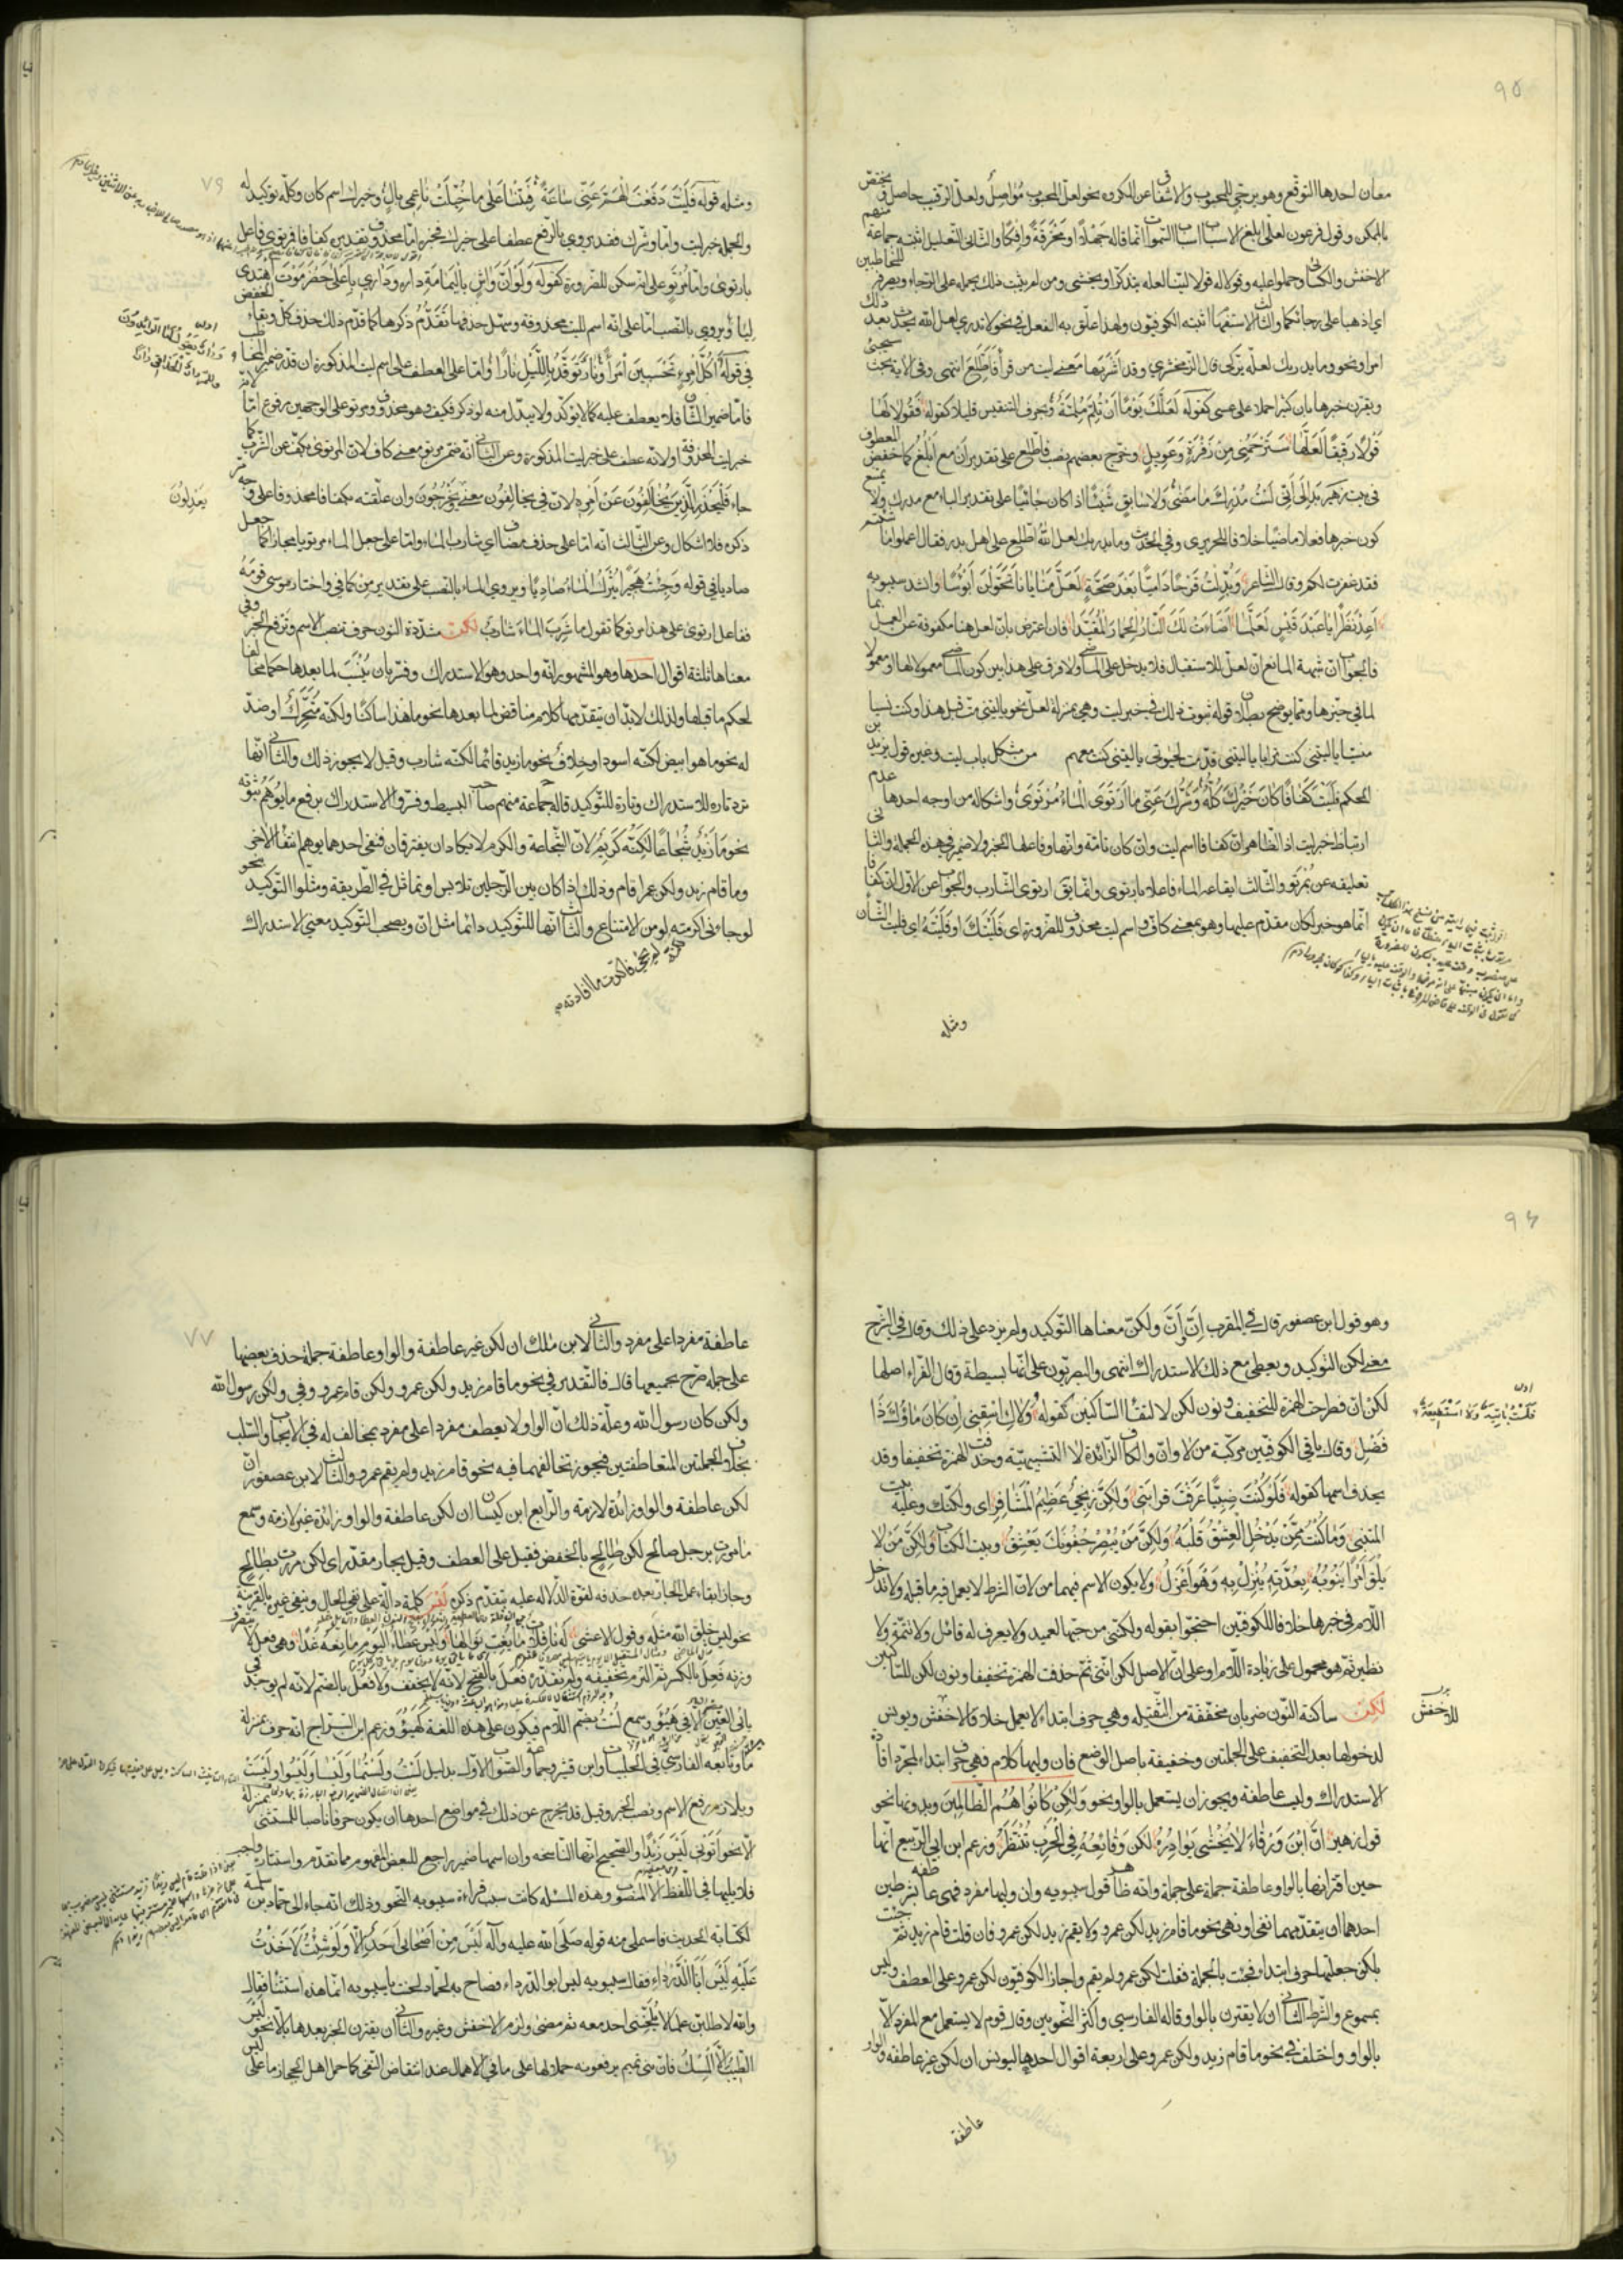 معان احدها التوقع وهو ترجي المحبوب والاشفاق عن المكروه نحو لعل المحبوب مواصل ولعل الرقيب حاصل ويختص
بالممكن وقول فرعون لعلي ابلغ الاسباب اسباب السموات انما قاله جهلا او مخرقة وافكا والثاني التعليل اثبته جماعة منهم
الاخفش والكسائي وحملوا عليه وقولا له قولا لينا لعله يتذكر او يخشى ومن لم يثبت ذلك يحمله على الرجاء ويصرفه للمخاطبين
اي اذهبا على رجائكما والثالث الاستفهام اثبته الكوفيون ولهذا علق به الفعل في نحو لا تدري لعل الله يحدث بعد ذلك
امرا ونحو وما يدريك لعله يزكى قال الزمخشري وقد اشربها معنى ليت من قرأ فاطلع انتهى وفي الاية بحث سيجيء
ويقترن خبرها بان كثيرا حملا على عسى كقوله لعلك يوما ان تلم ملمة وبحرف التنفيس قليلا كقوله فقولا لها
قولا رقيقا لعلها سترحمني من زفرة وعويل وخرج بعضهم نصب فاطلع على تقدير ان مع ابلغ كما خفض المعطوف
في بيت زهير بدا لي اني لست مدرك ما مضى ولا سابق شيئا اذا كان جائيا على تقدير الباء مع مدرك ولا يمتنع
كون خبرها فعلا ماضيا خلافا للحريري وفي الحديث وما يدريك لعل الله اطلع على اهل بدر فقال اعملوا ما شئتم
فقد غفرت لكم وقال الشاعر وبدلت قرحا داميا بعد صحة لعل منايانا تحولن ابؤسا وانشد سيبويه
اعد نظرا يا عبد قيس لعلما اضاءت لك النار الحمار المقيدا فان اعترض بان لعل هنا مكفوفة عن العمل بما
فالجواب ان شبهة المانع ان لعل للاستقبال فلا يدخل على الماضي ولا فرق على هذا بين كون الماضي معمولا لها او معمولا
لما في حيزها ومما يوضح بطلان قوله ثبوت ذلك في خبر ليت وهي بمنزلة لعل نحو يا ليتني مت قبل هذا وكنت نسيا
منسيا يا ليتني كنت ترابا يا ليتني قدمت لحيوتي يا ليتني كنت معهم من مشكل باب ليت وغيره قول يزيد بن
الحكم فليت كفافا كان خيرك كله وشرك عني ما ارتوى الماء مرتوى واشكاله من اوجه احدها عدم
ارتباط خبر ليت اذ الظاهر ان كفافا اسم ليت وان كان تامة وانها وفاعلها الخبر ولا ضمير في هذه الجملة والثاني
تعليقه عن بمرتو والثالث ايقاعه الماء فاعلا بارتوى وانما يقال ارتوى الشارب والجواب عن الاول ان كفافا
انما هو خبر لكان مقدم عليها وهو بمعنى كاف واسم ليت محذوف للضرورة اي فليتك او فليته اي فليت الشأن
ومثله
ومثله قوله فليت دفعت الهم عني ساعة فبتنا على ما خيلت ناعمي بال وخيرك اسم كان وكله توكيد له
والجملة خبر ليت واما وشرك فقد يروى بالرفع عطفا على خيرك فخبره اما محذوف تقديره كفافا فمرتوي فاعل
بارتوى واما مرتو على انه سكن للضرورة كقوله ولو ان واش باليمامة داره وداري باعلى حضرموت اهتدى
ليا ويروى بالنصب اما على انه اسم لليت محذوفة وسهل حذفها تقدم ذكرها كما قدم ذلك حذف كل وبقاء الخفض
في قوله اكل امرئ تحسبين امرأ ونار توقد بالليل نارا واما على العطف على اسم ليت المذكورة ان قدر ضمير المخاطب
فاما ضمير الشأن فلا يعطف عليه كما لا يؤكد ولا يبدل منه لو ذكر فكيف وهو محذوف ومرتو على الوجهين مرفوع اما لانه
خبر ليت المحذوفة او لانه عطف على خبر ليت المذكورة وعن الثاني انه ضمن مرتو معنى كاف لان المرتوي يكف عن الشرب كما
جاء فليحذر الذين يخالفون عن امره لان في يخالفون معنى يخرجون وان علقته بكفافا محذوفا على وجه مر
ذكره فلا اشكال وعن الثالث انه اما على حذف مضاف اي شارب الماء واما على جعل الماء مرتويا مجازا كما جعل
صاديا في قوله وجئت هجيرا يترك الماء صاديا ويروى الماء بالنصب على تقدير من كما في واختار موسى قومه
ففاعل ارتوى على هذا مرتو كما تقول ما شرب الماء شارب لكن مشددة النون حرف تنصب الاسم وترفع الخبر وفي
معناها ثلثة اقوال احدها وهو المشهور انه واحد وهو الاستدراك وفسر بان ينسب لما بعدها حكما مخالفا
لحكم ما قبلها ولذلك لابد ان يتقدمها كلام مناقض لما بعدها نحو ما هذا ساكنا ولكنه متحرك او ضد
له نحو ما هو ابيض لكنه اسود او خلاف نحو ما زيد قائما لكنه شارب وقيل لا يجوز ذلك والثاني انها
ترد تارة للاستدراك وتارة للتوكيد قاله جماعة منهم صاحب البسيط وفسروا الاستدراك برفع ما يوهم ثبوته
نحو ما زيد شجاعا لكنه كريم لان الشجاعة والكرم لا يكادان يفترقان فنفي احدهما يوهم انتفاء الاخر
وما قام زيد ولكن عمرا قام وذلك اذا كان بين الرجلين تلابس او تماثل في الطريقة ومثلوا التوكيد بنحو
لو جاءني اكرمته لو من الامتناع والثالث انها للتوكيد دائما مثل ان ويصحب التوكيد معنى الاستدراك
وهو قول ابن عصفور قال في المقرب ان وان ولكن معناها التوكيد ولم يزد على ذلك وقال في الشرح
معنى لكن التوكيد ويعطي مع ذلك الاستدراك انتهى والبصريون على انها بسيطة وقال الفراء اصلها
لكن ان فطرحت الهمزة للتخفيف ونون لكن لالتقاء الساكنين كقوله ولاك اسقني ان كان ماؤك ذا
فلست باتيه ولا استطيعه
فضل وقال باقي الكوفيين مركبة من لا وان والكاف الزائدة لا التشبيهية وحذفت الهمزة تخفيفا وقد
يحذف اسمها كقوله فلو كنت ضبيا عرفت قرابتي ولكن زنجي عظيم المشافر اي ولكنك وعليه بيت
المتنبي وما كنت ممن يدخل العشق قلبه ولكن من يبصر جفونك يعشق وبيت الكتاب ولكن من لا
يلق امرا ينوبه بعدته ينزل به وهو اعزل ولا يكون الاسم فيهما من لان الشرط لا يعمل فيه ما قبله ولا تدخل
اللام في خبرها خلافا للكوفيين احتجوا بقوله ولكنني من حبها لعميد ولا يعرف له قائل ولا تتمة ولا
نظير ثم هو محمول على زيادة اللام او على ان الاصل لكن انني ثم حذفت الهمزة تخفيفا ونون لكن للساكنين
لكن ساكنة النون ضربان مخففة من الثقيلة وهي حرف ابتداء لا يعمل خلافا للاخفش ويونس
للاخفش
لدخولها بعد التخفيف على الجملتين وخفيفة باصل الوضع فان وليها كلام فهي حرف ابتداء لمجرد افادة
الاستدراك وليست عاطفة ويجوز ان يستعمل بالواو نحو ولكن كانوا هم الظالمين وبدونها نحو
قول زهير ان ابن ورقاء لا يخشى بوادره لكن وقائعه في الحرب تنتظر وزعم ابن ابي الربيع انها
حين اقترانها بالواو عاطفة جملة على جملة وانه ظاهر قول سيبويه وان وليها مفرد فهي عاطفة بشرطين
احدهما ان يتقدمها نفي او نهي نحو ما قام زيد لكن عمرو ولا يقم زيد لكن عمرو فان قلت قام زيد ثم جئت
بلكن جعلتها حرف ابتداء فجئت بالجملة فقلت لكن عمرو لم يقم واجاز الكوفيون لكن عمرو على العطف وليس
بمسموع والشرط الثاني ان لا يقترن بالواو قاله الفارسي واكثر النحويين وقال قوم لا يستعمل مع المفرد الا
بالواو واختلف في نحو ما قام زيد ولكن عمرو على اربعة اقوال احدها ليونس ان لكن غير عاطفة والواو
عاطفة
عاطفة مفردا على مفرد والثاني لابن مالك ان لكن غير عاطفة والواو عاطفة جملة حذف بعضها
على جملة صرح بجميعها قال فالتقدير في نحو ما قام زيد ولكن عمرو ولكن قام عمرو وفي ولكن رسول الله
ولكن كان رسول الله وعلة ذلك ان الواو لا يعطف مفردا على مفرد مخالف له في الايجاب والسلب
بخلاف الجملتين المتعاطفتين فيجوز تخالفهما فيه نحو قام زيد ولم يقم عمرو والثالث لابن عصفور ان
لكن عاطفة والواو زائدة لازمة والرابع لابن كيسان ان لكن عاطفة والواو زائدة غير لازمة وسمع
ما مررت برجل صالح لكن طالح بالخفض فقيل على العطف وقيل بجار مقدر اي لكن مررت بطالح
وجاز ابقاء عمل الجار بعد حذفه لقوة الدلالة عليه بتقدم ذكره ليس كلمة دالة على نفي الحال وينفي غيره بالقرينة
نحو ليس خلق الله مثله وقول الاعشى له نافلات ما يغب نوالها وليس عطاء اليوم مانعه غدا وهي فعل لا يتصرف
وزنه فعل بالكسر ثم التزم تخفيفه ولم نقدره فعل بالفتح لانه لا يخفف ولا فعل بالضم لانه لم يوجد في
يائي العين الا في هيؤ وسمع لست بضم اللام فيكون على هذه اللغة كهيؤ وزعم ابن السراج انه حرف بمنزلة
ما وتابعه الفارسي في الحلبيات وابن شقير وجماعة والصواب الاول بدليل لست ولستما وليسا وليسوا وليست
ويلازم رفع الاسم ونصب الخبر وقيل قد يخرج عن ذلك في مواضع احدها ان يكون حرفا ناصبا للمستثنى بمنزلة
الا نحو اتوني ليس زيدا والصحيح انها الناسخة وان اسمها ضمير راجع للبعض المفهوم مما تقدم واستتاره واجب
فلا يليها في اللفظ الا المنصوب وهذه المسئلة كانت سبب قراءة سيبويه النحو وذلك انه جاء الى حماد بن سلمة
لكتابة الحديث فاستملى منه قوله صلى الله عليه وآله ليس من اصحابي احد الا ولو شئت لاخذت
عليه ليس ابا الدرداء فقال سيبويه ليس ابو الدرداء فصاح به حماد لحنت يا سيبويه انما هذه استثناء فقال
والله لاطلبن علما لا يلحنني احد معه ثم مضى ولزم الاخفش وغيره والثاني ان يقترن الخبر بعدها بالا نحو ليس
الطيب الا المسك فان بني تميم يرفعونه حملا لها على ما في الاهمال عند انتقاض النفي كما حمل اهل الحجاز ما على ليس